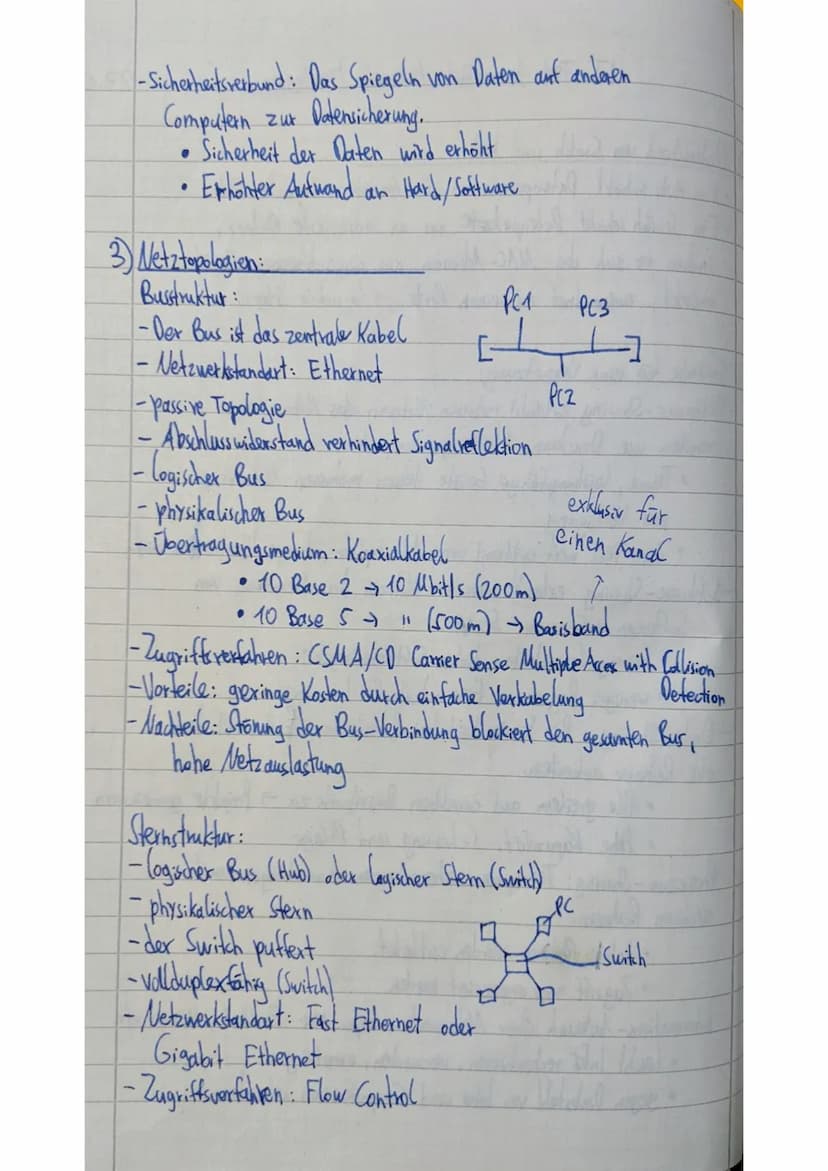 -Sicherheitsverbund: Das Spiegeln von Daten auf anderen
Computern zur Datensicherung.
• Sicherheit der Daten wird erhöht
• Erhöhter Aufwand an Hard/Software
3) Netztopologien:
Busstruktur:
-Der Bus ist das zentrale Kabel
- Netzwerkstandart: Ethernet
-passive Topologie
- Abschlusswiderstand verhindert Signalreflektion
-logischer Bus
- physikalischer Bus
-Übertragungsmedium: Koaxialkabel
• 10 Base 2 → 10 Mbit/s (200m)
• 10 Base 5 → " (500m) → Basisband
PC1
PC3
PC2
exklusiv für
einen Kanal
-Zugriffsverfahren: CSMA/CD Carrier Sense Multiple Acces with Collision
Detection
-Vorteile: geringe Kosten durch einfache Verkabelung
-Nachteile: Störung der Bus-Verbindung blockiert den gesamten Bus,
hohe Netzauslastung
Sternstruktur:
-logischer Bus (Hub) oder logischer Stern (Switch)
- physikalischer Stern
-der Switch puffert
-vollduplexfähig (Switch)
- Netzwerkstandart: Fast Ethernet oder
Gigabit Ethernet
-Zugriffsverfahren: Flow Control
PC
Switch